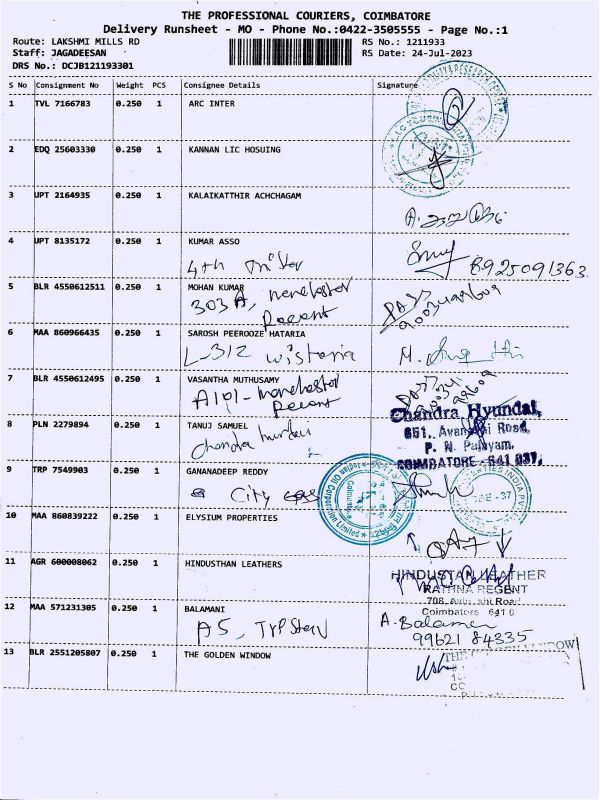 THE PROFESSIONAL COURIERS, COIMBATORE
Delivery Runsheet - MO - Phone No.:0422-3505555 - Page No.:1
Route: LAKSHMI MILLS RD
RS No.: 1211933
Staff: JAGADEESAN
RS Date: 24-Jul-2023
DRS No.: DCJB121193301
S No Consignment No Weight PCS Consignee Details Signature
1 TVL 7166783 0.250 1 ARC INTER
2 EDQ 25603330 0.250 1 KANNAN LIC HOSUING
3 UPT 2164935 0.250 1 KALAIKATTHIR ACHCHAGAM
4 UPT 8135172 0.250 1 KUMAR ASSO
4th
8925091363
5 BLR 4550612511 0.250 1 MOHAN KUMAR
303 A,
6 MAA 860966435 0.250 1 SAROSH PEEROOZE HATARIA
L-312 wistaria
7 BLR 4550612495 0.250 1 VASANTHA MUTHUSAMY
A101-
Chandra Hyundai,
8 PLN 2279894 0.250 1 TANUJ SAMUEL
651, Road,
P. N. Palayam,
COIMBATORE - 641 037.
9 TRP 7549903 0.250 1 GANANDEEP REDDY
City gas
Indian Oil Corporation Limited
10 MAA 860839222 0.250 1 ELYSIUM PROPERTIES
11 AGR 600008062 0.250 1 HINDUSTHAN LEATHERS
HINDUSTAN LEATHER
RATHNA REGENT
708, Road
Coimbatore
12 MAA 571231305 0.250 1 BALAMANI
A5,
A. Balamani
99621 84335
13 BLR 2551205807 0.250 1 THE GOLDEN WINDOW